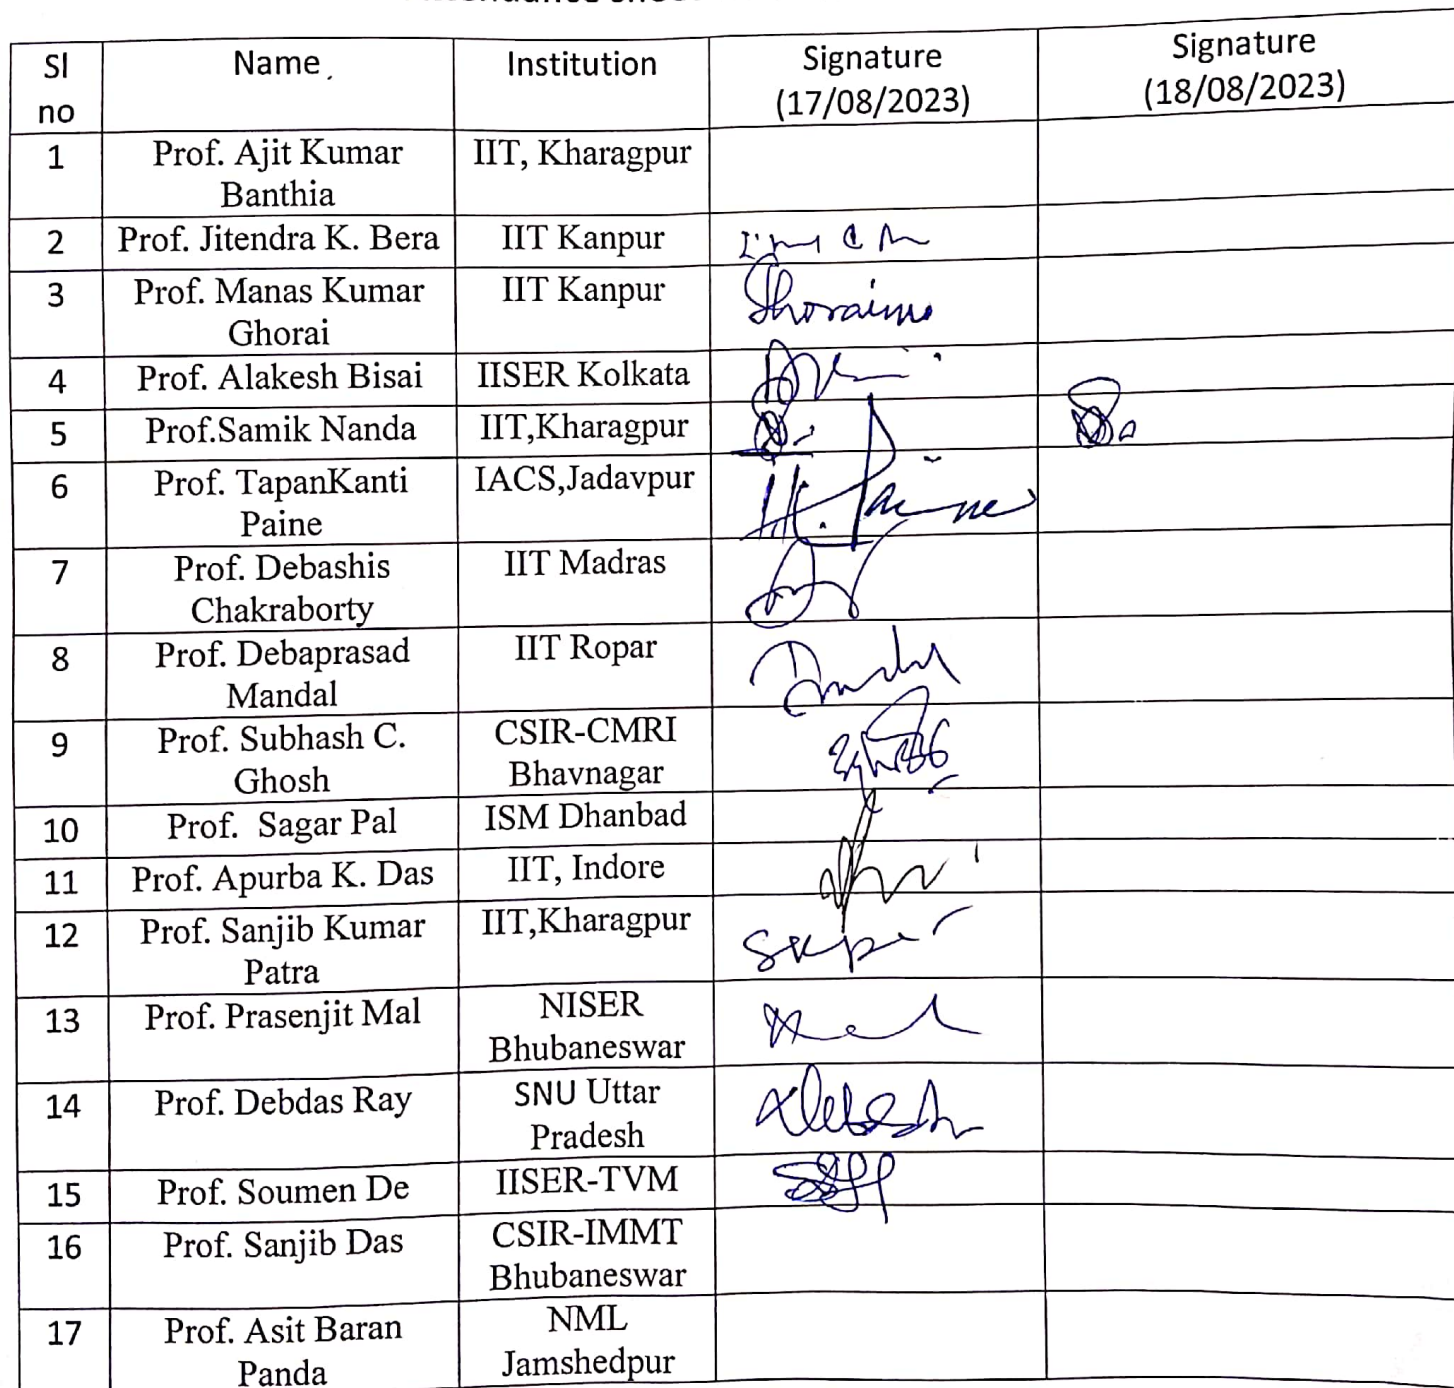 Sl
no
Name
Institution
Signature
(17/08/2023)
Signature
(18/08/2023)
1
Prof. Ajit Kumar
Banthia
IIT, Kharagpur
2
Prof. Jitendra K. Bera
IIT Kanpur
3
Prof. Manas Kumar
Ghorai
IIT Kanpur
4
Prof. Alakesh Bisai
IISER Kolkata
5
Prof.Samik Nanda
IIT,Kharagpur
6
Prof. TapanKanti
Paine
IACS,Jadavpur
7
Prof. Debashis
Chakraborty
IIT Madras
8
Prof. Debaprasad
Mandal
IIT Ropar
9
Prof. Subhash C.
Ghosh
CSIR-CMRI
Bhavnagar
10
Prof. Sagar Pal
ISM Dhanbad
11
Prof. Apurba K. Das
IIT, Indore
12
Prof. Sanjib Kumar
Patra
IIT,Kharagpur
13
Prof. Prasenjit Mal
NISER
Bhubaneswar
14
Prof. Debdas Ray
SNU Uttar
Pradesh
15
Prof. Soumen De
IISER-TVM
16
Prof. Sanjib Das
CSIR-IMMT
Bhubaneswar
17
Prof. Asit Baran
Panda
NML
Jamshedpur